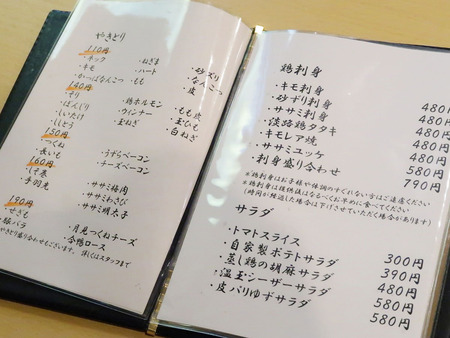 やきとり
110円
・ネック ・ねぎま ・砂ズリ
・キモ ・ハート ・なんこつ
・かっぱなんこつ ・もも ・皮
140円
・そり ・鶏ホルモン ・もも皮
・ぼんじり ・ウィンナー ・玉ひも
・しいたけ ・玉ねぎ ・白ねぎ
・ししとう
150円
・つくね ・うずらベーコン
・長いも ・チーズベーコン
160円
・しそ巻 ・ササミ梅肉
・手羽先 ・ササミわさび
・ササミ明太子
190円
・せぎも ・月見つくねチーズ
・豚バラ ・合鴨ロース
やきとり盛り合わせもございます。詳しくはスタッフまで
鶏刺身
・キモ刺身 480円
・砂ずり刺身 480円
・ササミ刺身 480円
・淡路鶏タタキ 480円
・キモレア焼 480円
・ササミユッケ 580円
・刺身盛り合わせ 790円
※鶏刺身はお子様や体調のすぐれない方はご遠慮ください
※鶏刺身は提供後はなるべくお早めに食べてください
(時間が経過した場合は下げさせていただく場合があります)
サラダ
・トマトスライス 300円
・自家製ポテトサラダ 390円
・蒸し鶏の胡麻サラダ 480円
・温玉シーザーサラダ 580円
・皮パリゆずサラダ 580円